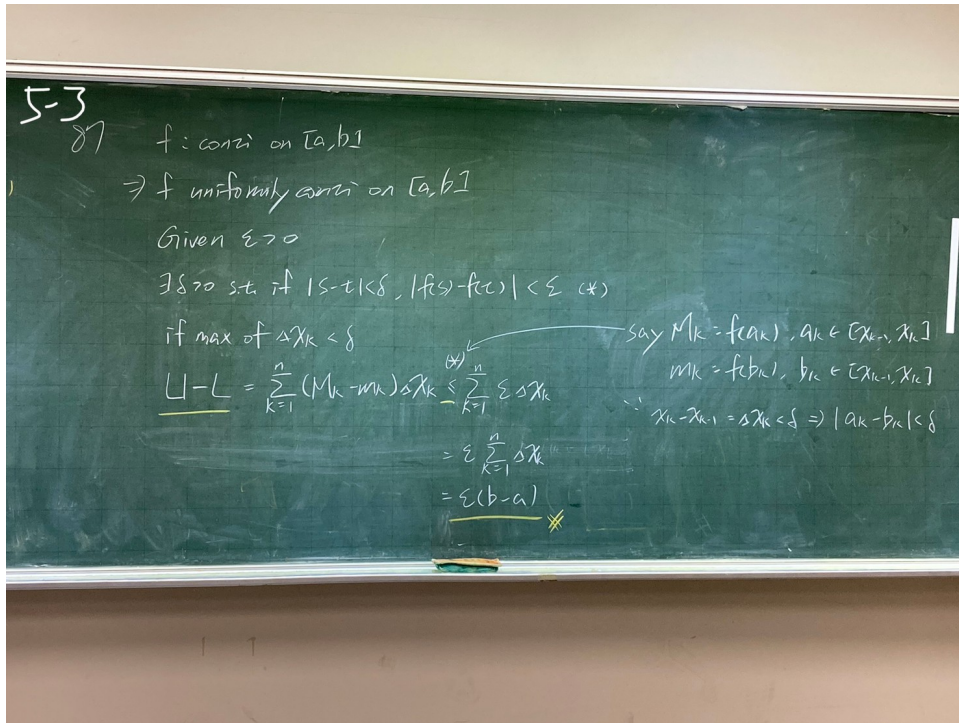 5-3
87 f : conti on [a,b]
⇒ f uniformly conti on [a,b]
Given ε>0
∃δ>0 s.t. if |s-t|<δ, |f(s)-f(t)| < ε (*)
if max of Δx_k < δ
U-L = Σ_{k=1}^{n} (M_k - m_k) Δx_k ≤^{(*)} Σ_{k=1}^{n} ε Δx_k
= ε Σ_{k=1}^{n} Δx_k
= ε(b-a) ※
say M_k = f(a_k), a_k ∈ [x_{k-1}, x_k]
m_k = f(b_k), b_k ∈ [x_{k-1}, x_k]
∵ x_k - x_{k-1} = Δx_k < δ ⇒ |a_k - b_k| < δ